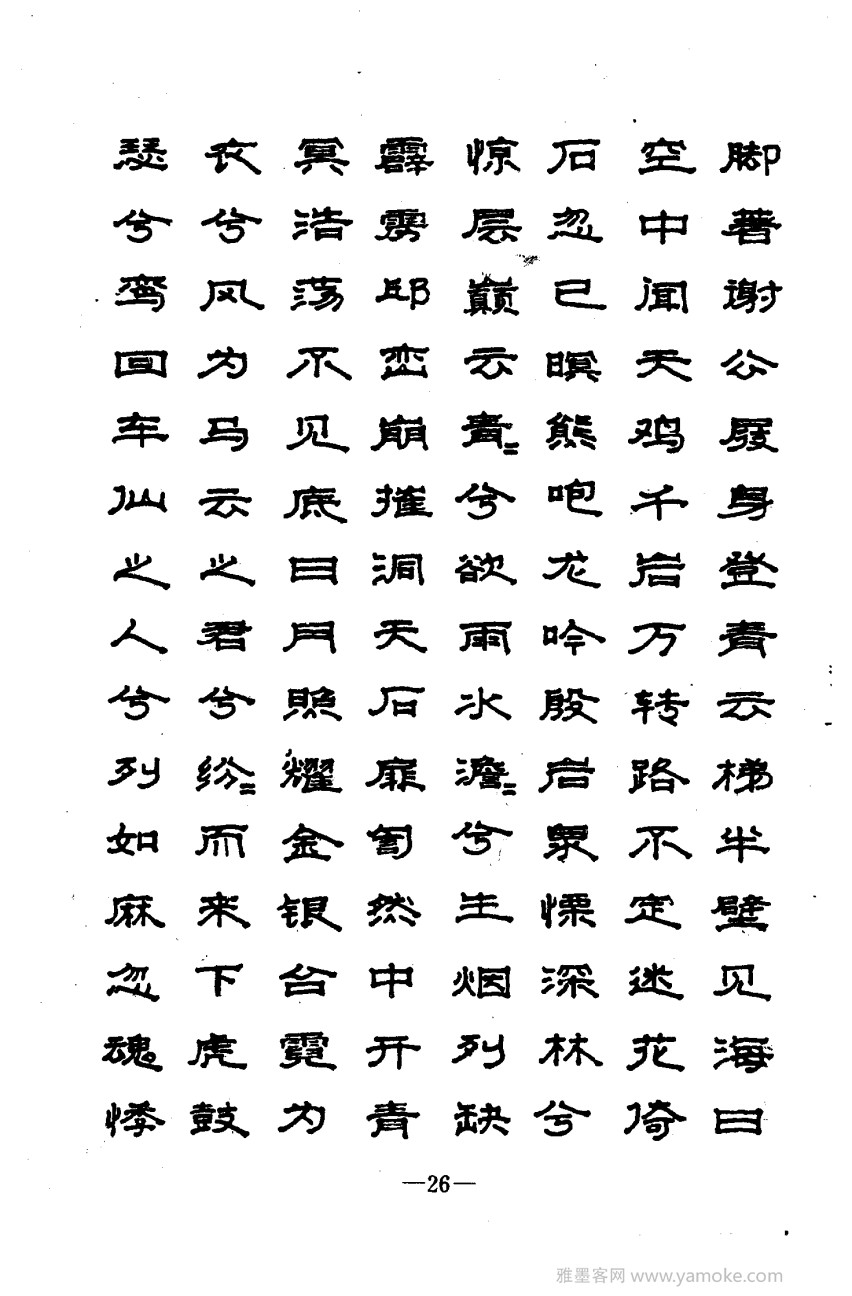 脚著谢公屐身登青云梯半壁见海日
空中闻天鸡千岩万转路不定迷花倚
石忽已暝熊咆龙吟殷岩泉慄深林兮
惊层巅云青=兮欲雨水澹=兮生烟列缺
霹雳邱峦崩摧洞天石扉訇然中开青
冥浩荡不见底日月照耀金银台霓为
衣兮风为马云之君兮纷=而来下虎鼓
瑟兮鸾回车仙之人兮列如麻忽魂悸
—26—
雅墨客网 www.yamoke.com